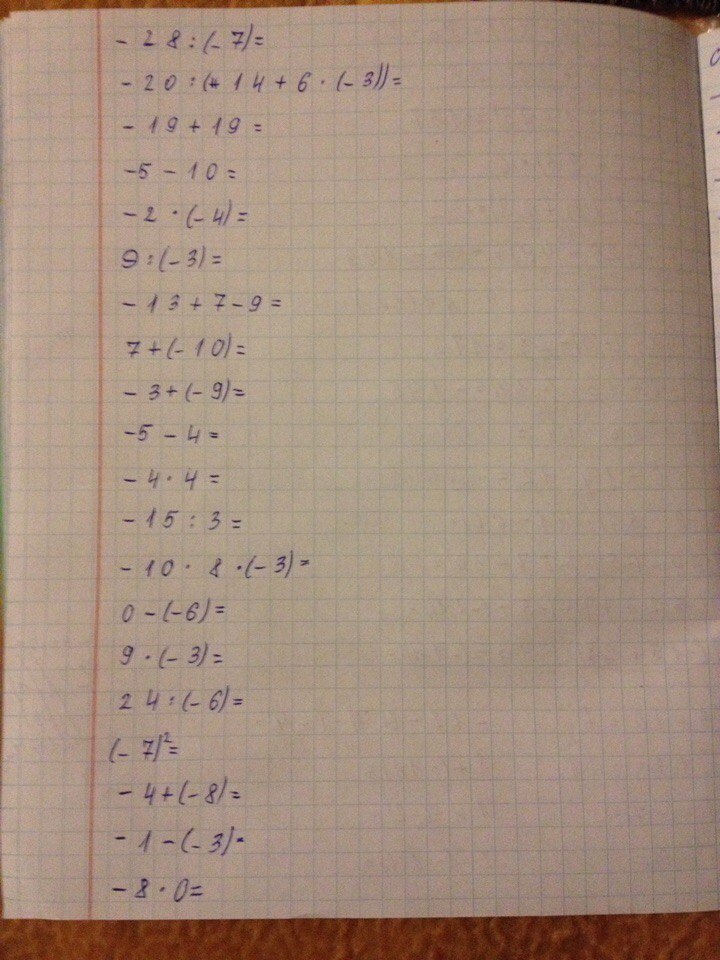 - 28 : (- 7) =
- 20 : (+ 14 + 6 · (- 3)) =
- 19 + 19 =
-5 - 10 =
- 2 · (- 4) =
9 : (- 3) =
- 13 + 7 - 9 =
7 + (- 10) =
- 3 + (- 9) =
-5 - 4 =
- 4 · 4 =
- 15 : 3 =
- 10 · 8 · (- 3) =
0 - (-6) =
9 · (- 3) =
24 : (- 6) =
(- 7)² =
- 4 + (- 8) =
- 1 - (- 3) =
- 8 · 0 =